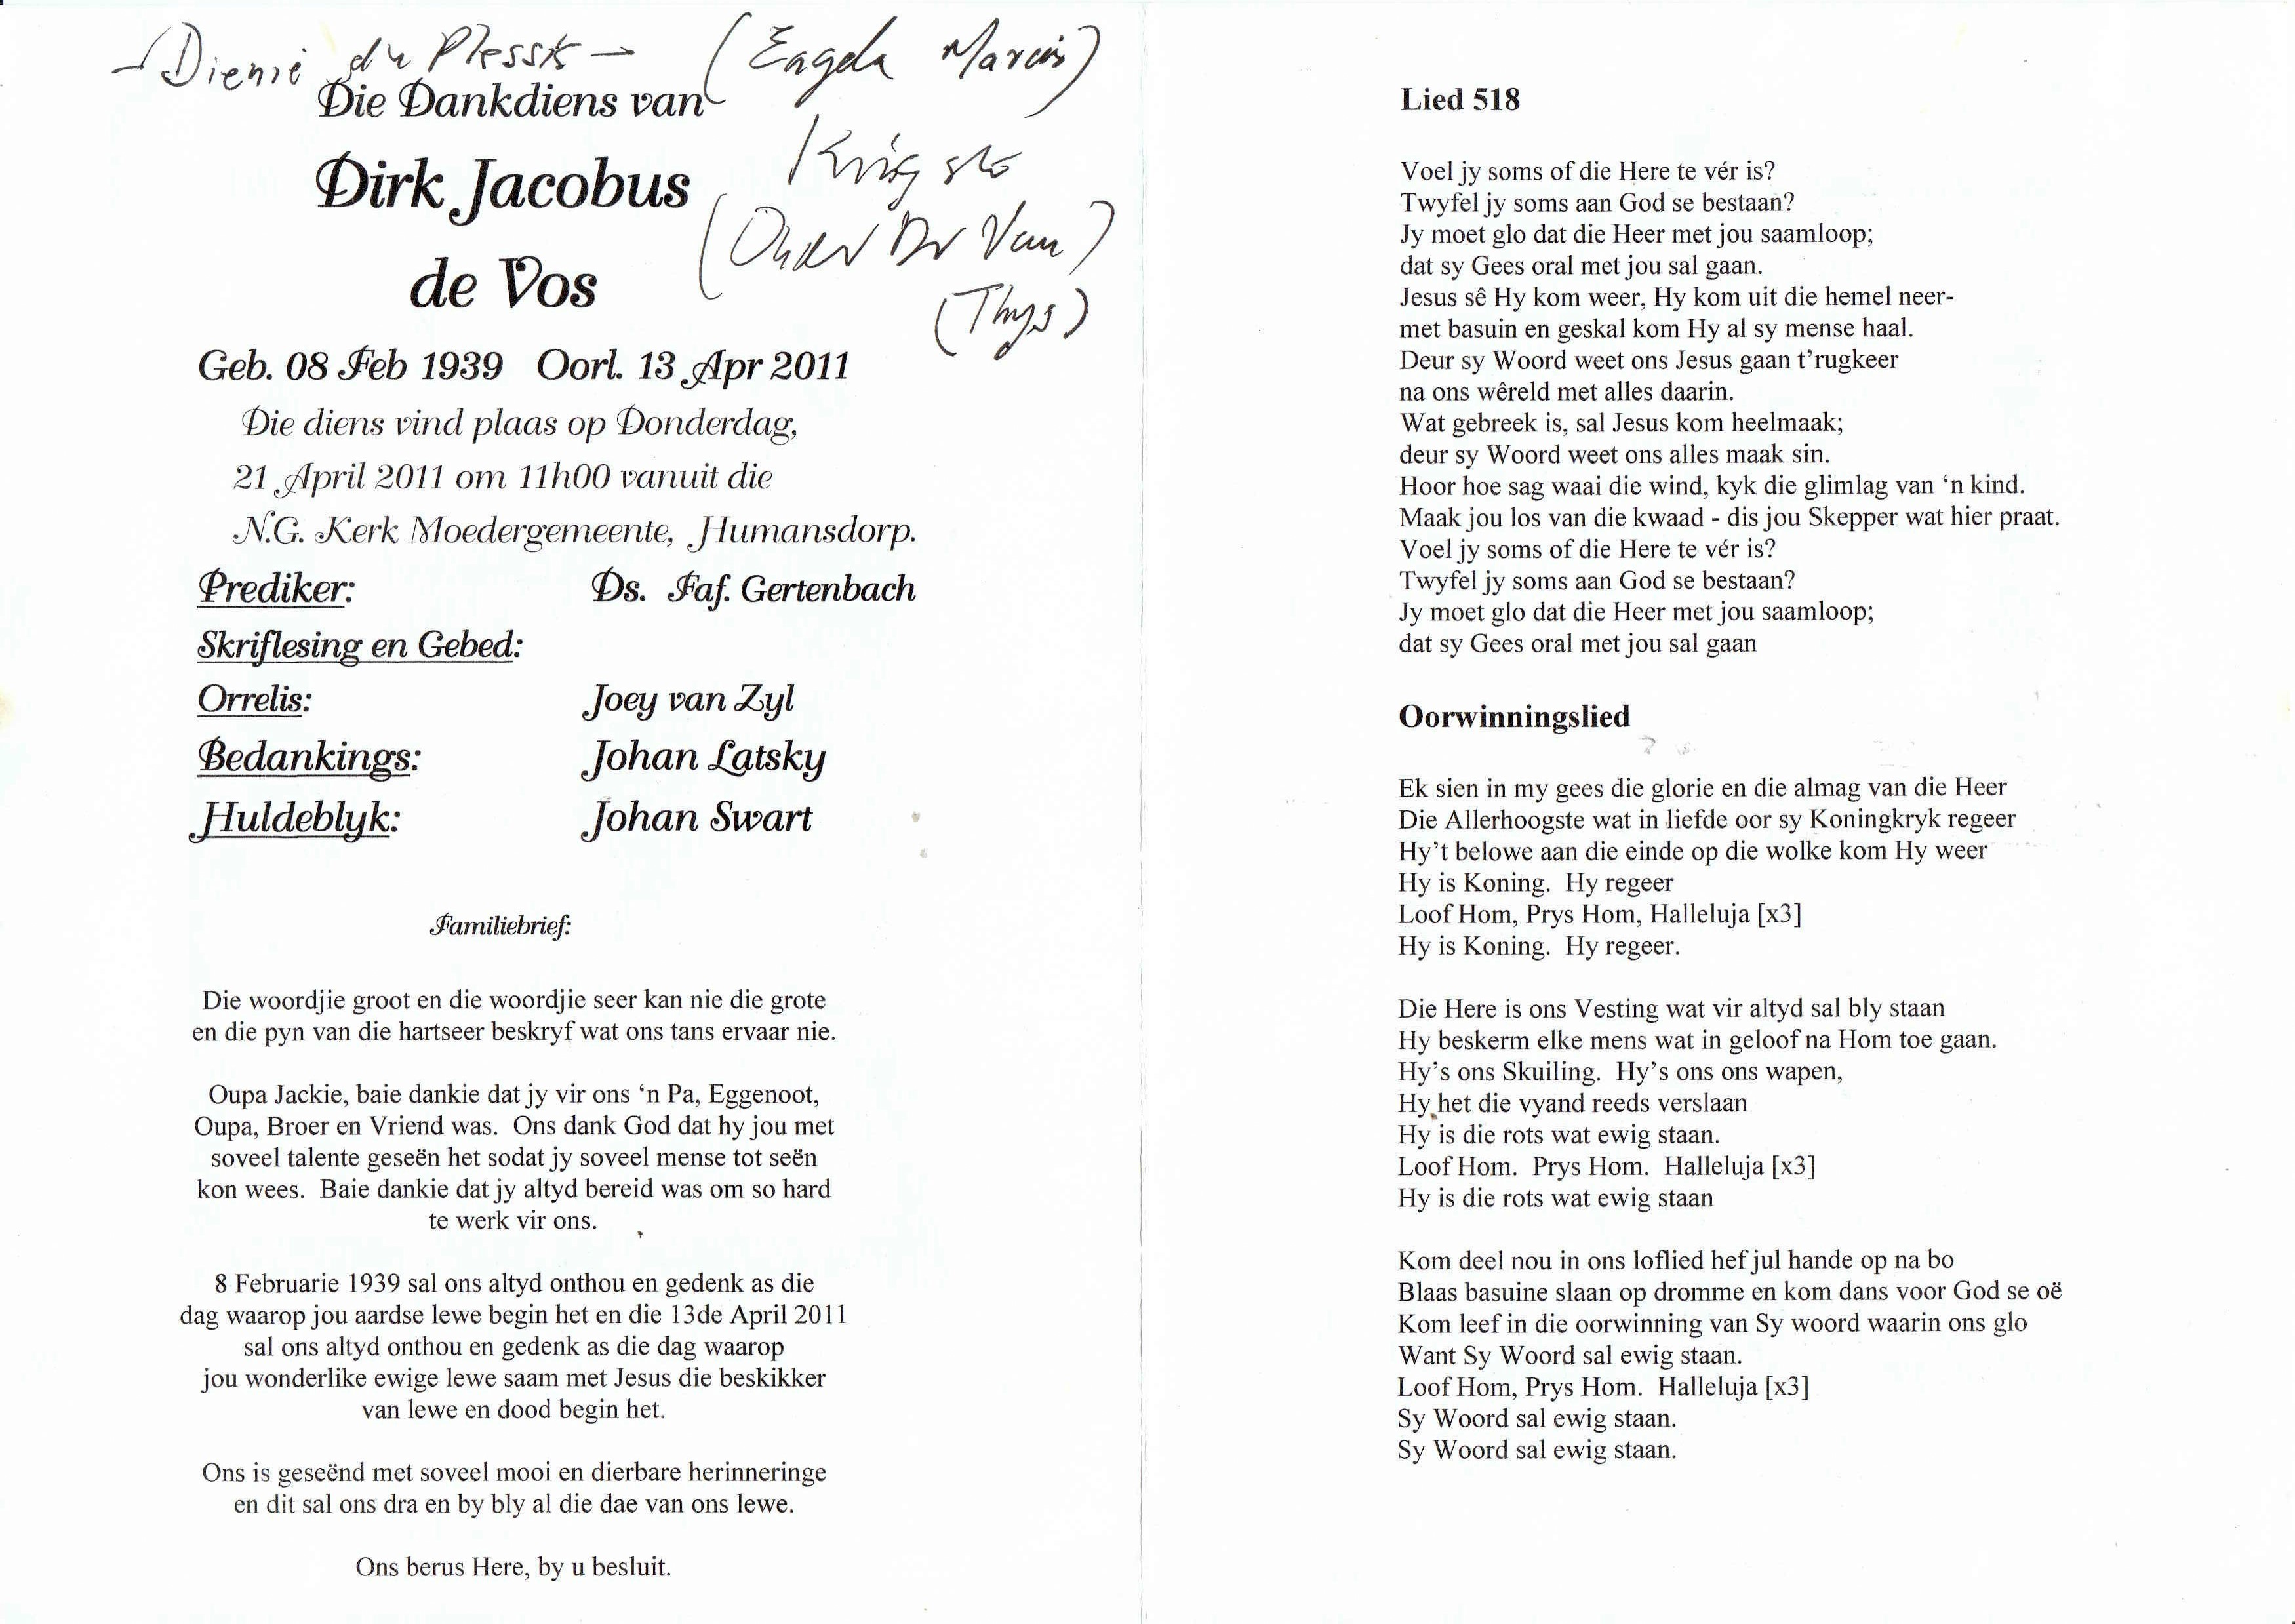 Dienie du Plessis
(Engela Marais)
Die Dankdiens van
Dirk Jacobus
de Vos
(Thys)
Geb. 08 Feb 1939 Oorl. 13 Apr 2011
Die diens vind plaas op Donderdag,
21 April 2011 om 11h00 vanuit die
N.G. Kerk Moedergemeente, Humansdorp.
Prediker: Ds. Faf. Gertenbach
Skriflesing en Gebed:
Orrelis: Joey van Zyl
Bedankings: Johan Latsky
Huldeblyk: Johan Swart
Familiebrief:
Die woordjie groot en die woordjie seer kan nie die grote
en die pyn van die hartseer beskryf wat ons tans ervaar nie.
Oupa Jackie, baie dankie dat jy vir ons ‘n Pa, Eggenoot,
Oupa, Broer en Vriend was. Ons dank God dat hy jou met
soveel talente geseën het sodat jy soveel mense tot seën
kon wees. Baie dankie dat jy altyd bereid was om so hard
te werk vir ons.
8 Februarie 1939 sal ons altyd onthou en gedenk as die
dag waarop jou aardse lewe begin het en die 13de April 2011
sal ons altyd onthou en gedenk as die dag waarop
jou wonderlike ewige lewe saam met Jesus die beskikker
van lewe en dood begin het.
Ons is geseënd met soveel mooi en dierbare herinneringe
en dit sal ons dra en by bly al die dae van ons lewe.
Ons berus Here, by u besluit.
Lied 518
Voel jy soms of die Here te vér is?
Twyfel jy soms aan God se bestaan?
Jy moet glo dat die Heer met jou saamloop;
dat sy Gees oral met jou sal gaan.
Jesus sê Hy kom weer, Hy kom uit die hemel neer-
met basuin en geskal kom Hy al sy mense haal.
Deur sy Woord weet ons Jesus gaan t’rugkeer
na ons wêreld met alles daarin.
Wat gebreek is, sal Jesus kom heelmaak;
deur sy Woord weet ons alles maak sin.
Hoor hoe sag waai die wind, kyk die glimlag van ‘n kind.
Maak jou los van die kwaad - dis jou Skepper wat hier praat.
Voel jy soms of die Here te vér is?
Twyfel jy soms aan God se bestaan?
Jy moet glo dat die Heer met jou saamloop;
dat sy Gees oral met jou sal gaan
Oorwinningslied
Ek sien in my gees die glorie en die almag van die Heer
Die Allerhoogste wat in liefde oor sy Koningkryk regeer
Hy’t belowe aan die einde op die wolke kom Hy weer
Hy is Koning. Hy regeer
Loof Hom, Prys Hom, Halleluja [x3]
Hy is Koning. Hy regeer.
Die Here is ons Vesting wat vir altyd sal bly staan
Hy beskerm elke mens wat in geloof na Hom toe gaan.
Hy’s ons Skuiling. Hy’s ons ons wapen,
Hy het die vyand reeds verslaan
Hy is die rots wat ewig staan.
Loof Hom. Prys Hom. Halleluja [x3]
Hy is die rots wat ewig staan
Kom deel nou in ons loflied hef jul hande op na bo
Blaas basuine slaan op dromme en kom dans voor God se oë
Kom leef in die oorwinning van Sy woord waarin ons glo
Want Sy Woord sal ewig staan.
Loof Hom, Prys Hom. Halleluja [x3]
Sy Woord sal ewig staan.
Sy Woord sal ewig staan.